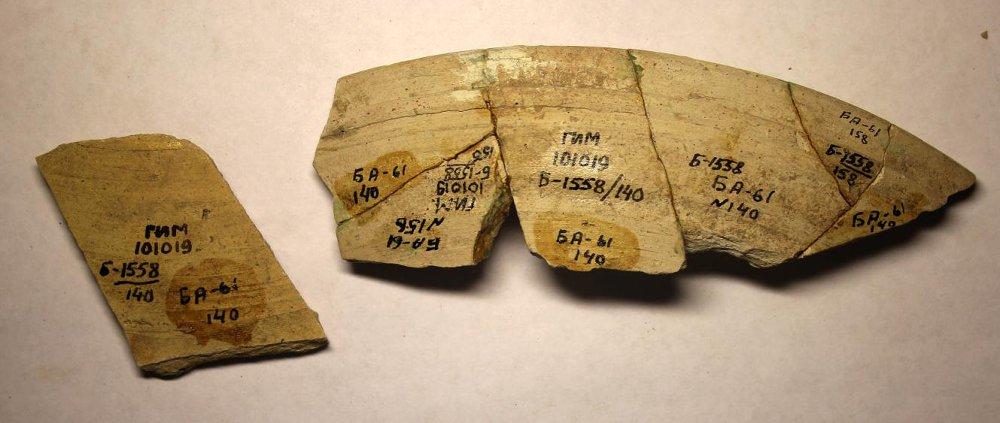 ГИМ
101019
Б-1558
140
БА-61
140
БА-61
140
БА-61
N158
ГИМ
101019
Б-1558
ГИМ
101019
Б-1558/140
БА-61
140
Б-1558
БА-61
N140
БА-61
158
Б-1558
158
БА-61
140